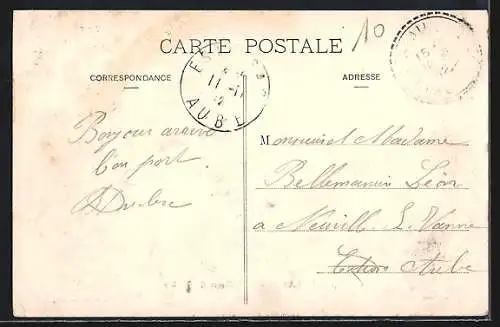 10
CARTE POSTALE
CORRESPONDANCE
ADRESSE
AUBE
Bonjour arrivé
bon port.
Monsieur et Madame
Bellemanin Léon
a Neuvill. s. Vanne
Aube